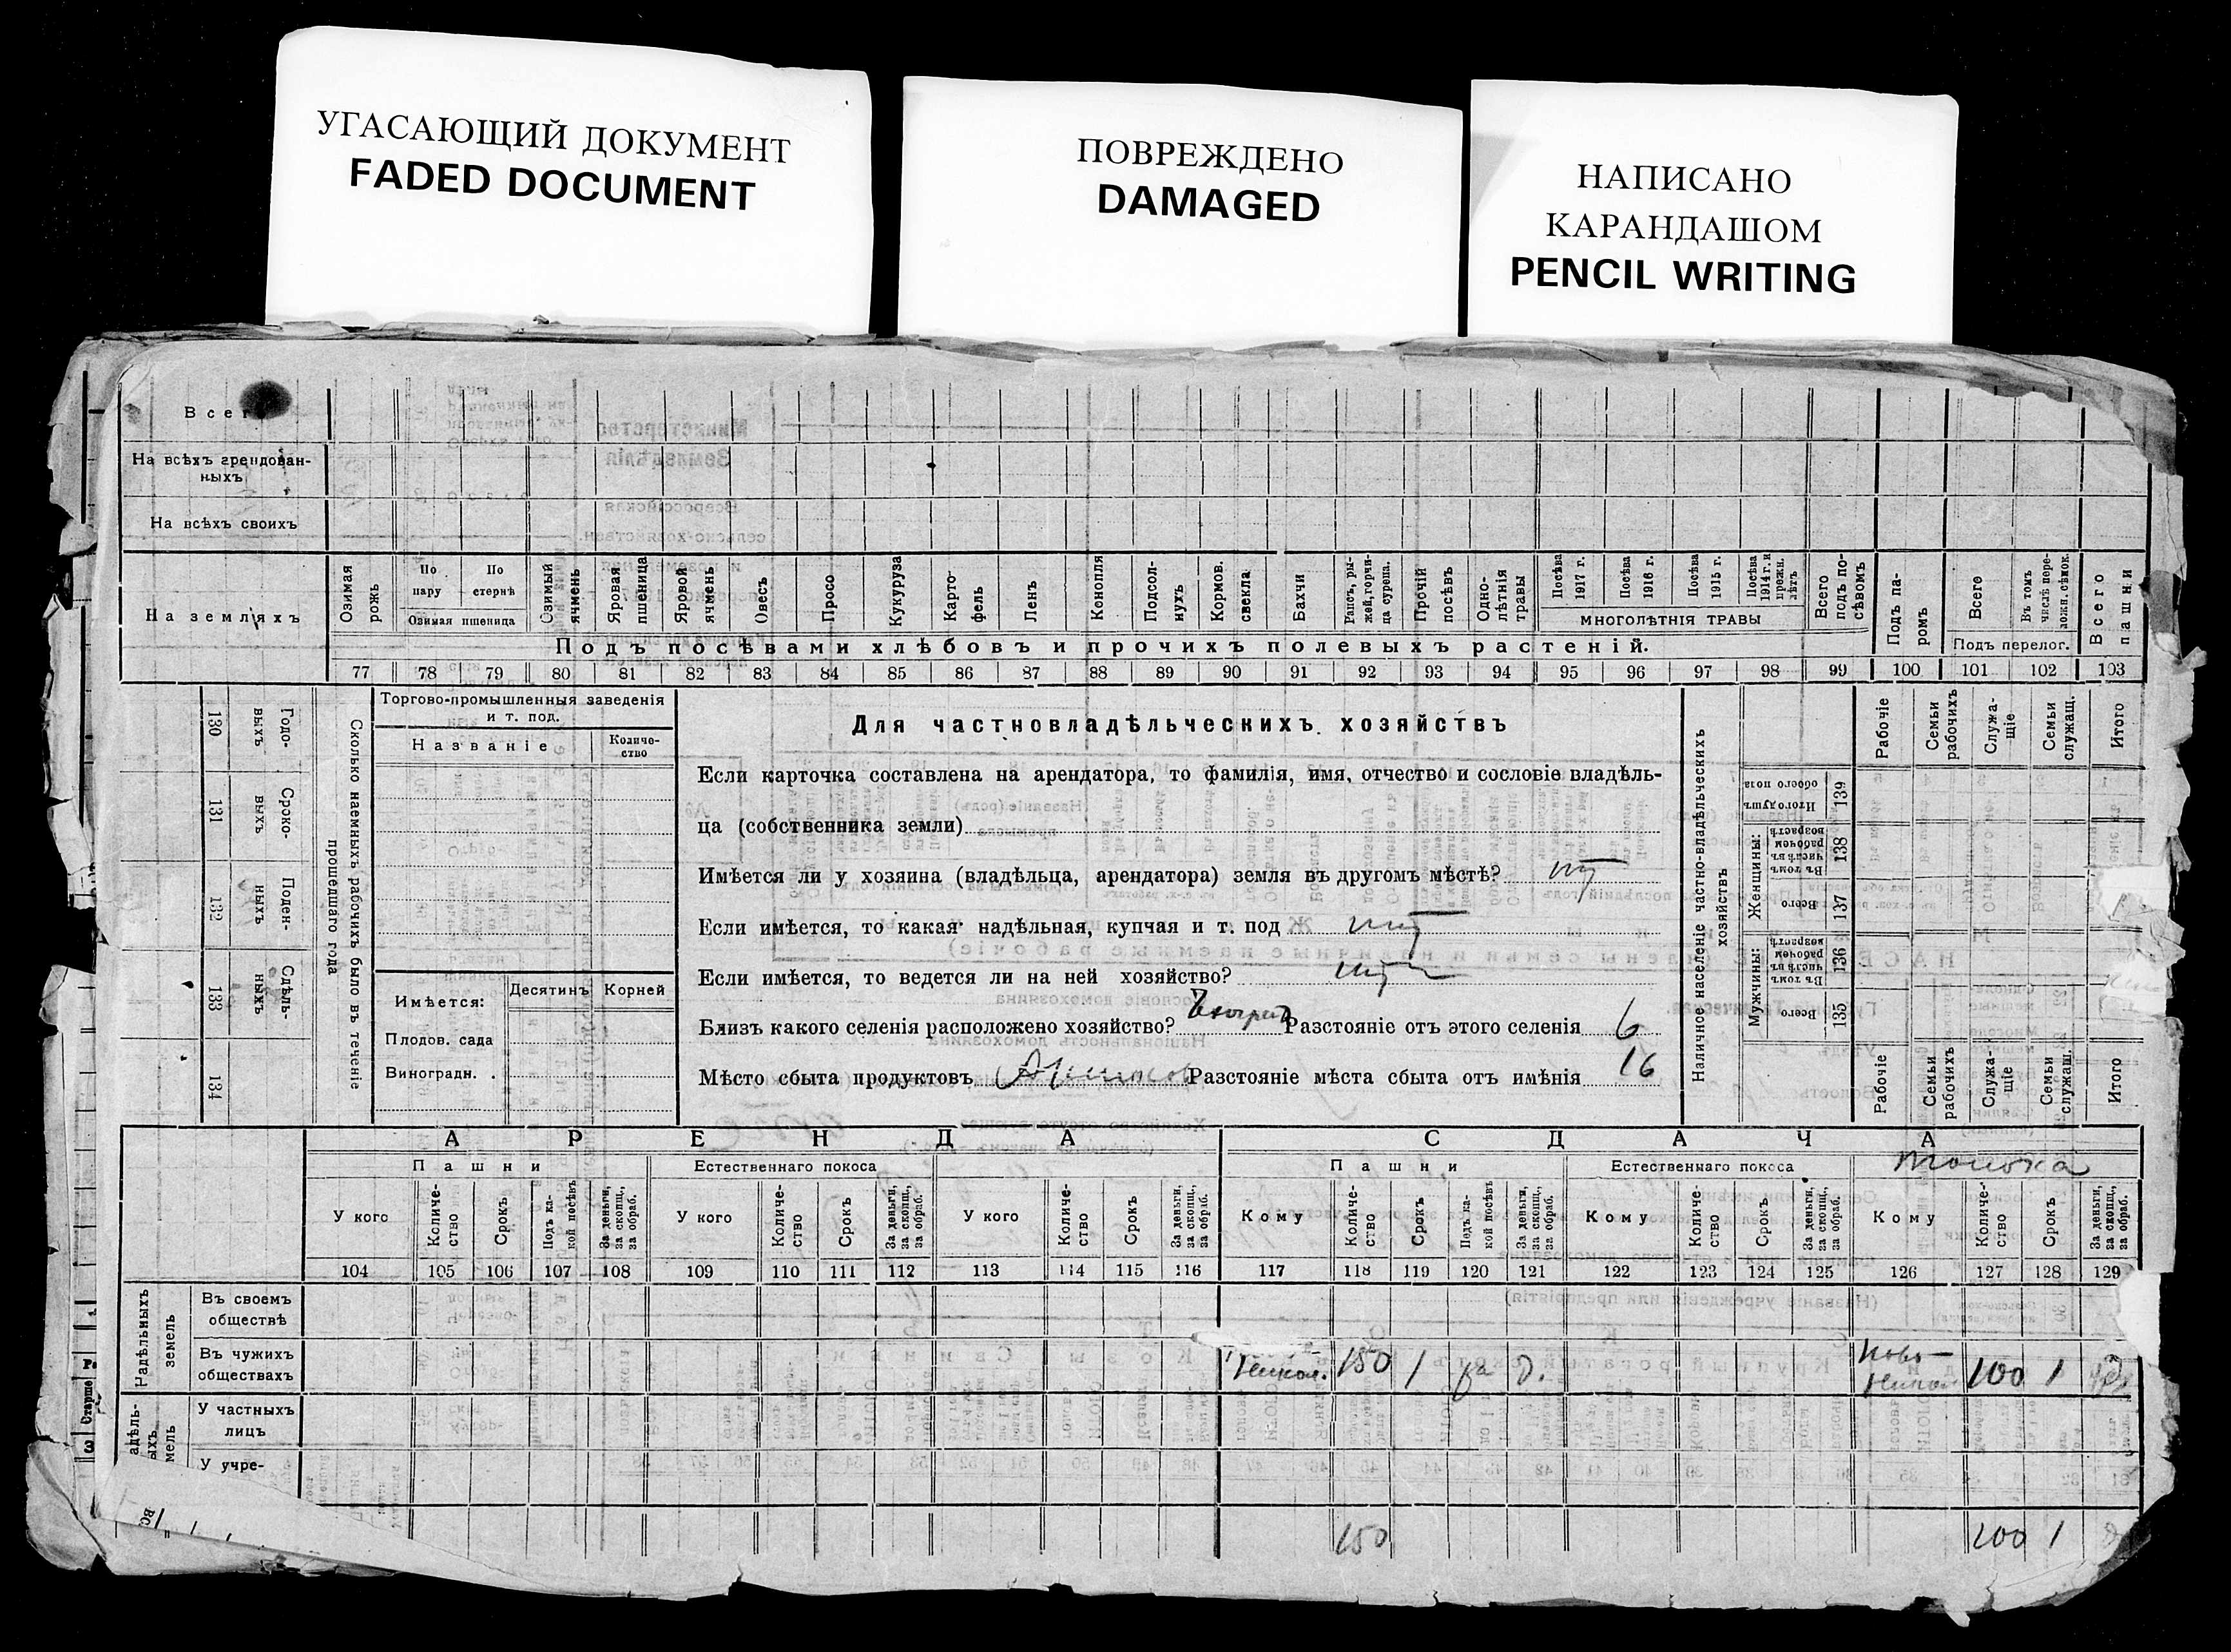 УГАСАЮЩИЙ ДОКУМЕНТ
FADED DOCUMENT
ПОВРЕЖДЕНО
DAMAGED
НАПИСАНО
КАРАНДАШОМ
PENCIL WRITING
На всѣхъ арендован-
ныхъ
На всѣхъ своихъ
На земляхъ
Озимая рожь
По пару
По стернѣ
Озимая пшеница
Озимый ячмень
Яровая пшеница
Яровой ячмень
Овесъ
Просо
Кукуруза
Карто-
фель
Ленъ
Конопля
Подсол-
нухъ
Кормов. свекла
Бахчи
Рапсъ, ры-
жей, горчи-
ца сурепа.
Прочій посѣвъ
Одно-
лѣтнія травы
Посѣва 1917 г.
Посѣва 1916 г.
Посѣва 1915 г.
Посѣва 1914 г. и прежн. лѣтъ
МНОГОЛѢТНІЯ ТРАВЫ
Всего подъ по-
сѣвомъ
Подъ па-
ромъ
Всего
Въ томъ числѣ пере-
ложн. сѣнок.
Подъ перелог.
Всего пашни
Подъ посѣвами хлѣбовъ и прочихъ полевыхъ растеній.
77 78 79 80 81 82 83 84 85 86 87 88 89 90 91 92 93 94 95 96 97 98 99 100 101 102 103
130 Годо-
выхъ
131 Сроко-
выхъ
132 Поден-
ныхъ
133 Сдѣль-
ныхъ
134
Сколько наемныхъ рабочихъ было въ теченіе
прошедшаго года
Торгово-промышленныя заведенія
и т. под.
Названіе
Количе-
ство
Имѣется:
Десятинъ
Корней
Плодов. сада
Виноградн.
Для частновладѣльческихъ хозяйствъ
Если карточка составлена на арендатора, то фамилія, имя, отчество и сословіе владѣль-
ца (собственника земли)
Имѣется ли у хозяина (владѣльца, арендатора) земля въ другомъ мѣстѣ?
Если имѣется, то какая надѣльная, купчая и т. под
Если имѣется, то ведется ли на ней хозяйство?
Близъ какого селенія расположено хозяйство? Разстояніе отъ этого селенія 6
Мѣсто сбыта продуктовъ Разстояніе мѣста сбыта отъ имѣнія 16
Наличное населеніе частно-владѣльческихъ
хозяйствъ
Мужчины:
Всего
135
Въ томъ числѣ въ рабочемъ возрастѣ
136
Женщины:
Всего
137
Въ томъ числѣ въ рабочемъ возрастѣ
138
Итого душъ обоего пола
139
Рабочіе
Семьи рабочихъ
Служа-
щіе
Семьи служащ.
Итого
Рабочіе
Семьи рабочихъ
Служа-
щіе
Семьи служащ.
Итого
АРЕНДА
СДАЧА
Пашни
Естественнаго покоса
Пашни
Естественнаго покоса
толока
У кого
Количе-
ство
Срокъ
Подъ ка-
кой посѣвъ
За деньги, за скопщ., за обраб.
У кого
Количе-
ство
Срокъ
За деньги, за скопщ., за обраб.
У кого
Количе-
ство
Срокъ
За деньги, за скопщ., за обраб.
Кому
Количе-
ство
Срокъ
Подъ ка-
кой посѣвъ
За деньги, за скопщ., за обраб.
Кому
Количе-
ство
Срокъ
За деньги, за скопщ., за обраб.
Кому
Количе-
ство
Срокъ
За деньги, за скопщ., за обраб.
104 105 106 107 108 109 110 111 112 113 114 115 116 117 118 119 120 121 122 123 124 125 126 127 128 129
Надѣльныхъ
земель
Въ своемъ
обществѣ
Въ чужихъ
обществахъ
Никол. 150 1 за д. Ново-
Никол 100 1
У частныхъ
лицъ
У учре-
150 100 1